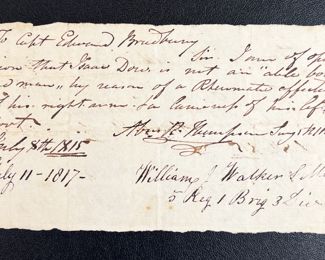 To Capt Edward Bradbury
Sir I am of opin
ion that Isaac Dow is not an "able bo
d man" by reason of a Rhumatic affectio
of his right arm & a lameness of his lef
oot.
July 8th 1815
ly 11 - 1817 -
William J Walker S. M
5 Reg 1 Brig 3 Div